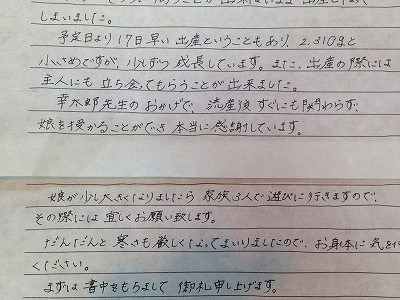 しまいました。
予定日より17日早い出産ということもあり、2,310gと
小さめですが、少しずつ成長しています。また、出産の際には
主人にも立ち会ってもらうことが出来ました。
幸太郎先生のおかげで、流産後すぐにも関わらず、
娘を授かることができ本当に感謝しています。
娘が少し大きくなりましたら家族3人で遊びに行きますので、
その際には宜しくお願い致します。
だんだんと寒さも厳しくなってまいりましたので、お身体に気を
ください。
まずは書中をもちまして御礼申し上げます。